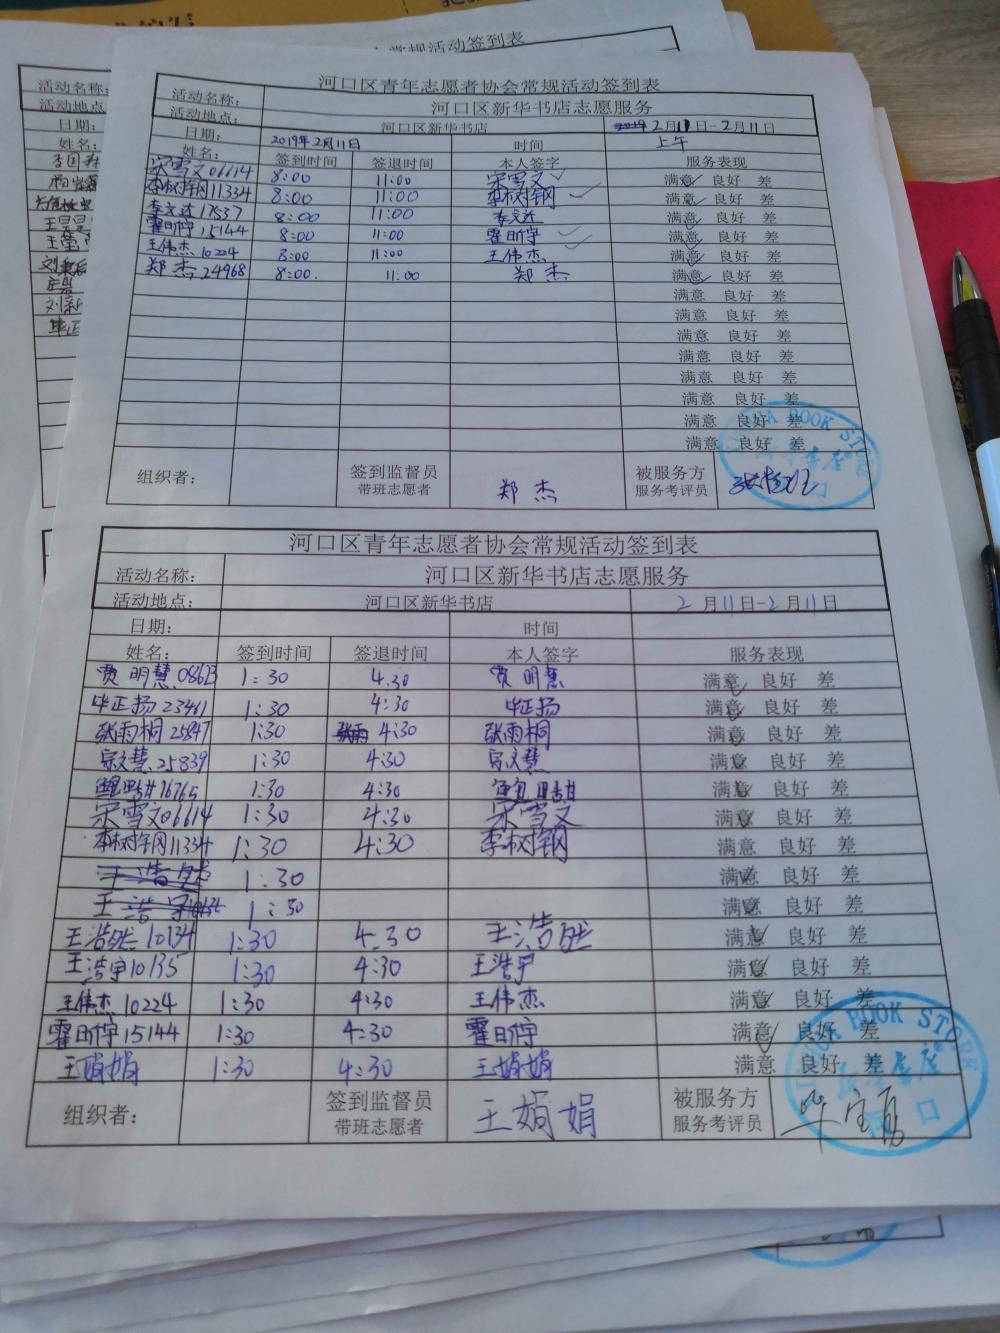 常规活动签到表
活动名称:
活动地点
日期:
姓名:
河口区青年志愿者协会常规活动签到表
活动名称: 河口区新华书店志愿服务
活动地点: 河口区新华书店 2月11日-2月11日
日期: 2019年2月11日 时间 上午
姓名: 签到时间 签退时间 本人签字 服务表现
宋雪文06614 8:00 11:00 宋雪文 满意 良好 差
李树钢11334 8:00 11:00 李树钢 满意 良好 差
李文达17537 8:00 11:00 李文达 满意 良好 差
霍日宇15144 8:00 11:00 霍日宇 满意 良好 差
王伟杰10224 8:00 11:00 王伟杰 满意 良好 差
郑杰24968 8:00. 11:00 郑杰 满意 良好 差
满意 良好 差
满意 良好 差
满意 良好 差
满意 良好 差
满意 良好 差
满意 良好 差
满意 良好 差
满意 良好 差
组织者: 签到监督员 带班志愿者 郑杰 被服务方 服务考评员
BOOK STORE
河口区青年志愿者协会常规活动签到表
活动名称: 河口区新华书店志愿服务
活动地点: 河口区新华书店 2月11日-2月11日
日期: 时间
姓名: 签到时间 签退时间 本人签字 服务表现
贾明慧08613 1:30 4.30 贾明慧 满意 良好 差
毕正扬23461 1:30 4:30 毕正扬 满意 良好 差
张雨桐25847 1:30 张雨 4:30 张雨桐 满意 良好 差
宗文慧25839 1:30 4:30 宗文慧 满意 良好 差
16765 1:30 4:30 满意 良好 差
宋雪文06614 1:30 4:30 宋雪文 满意 良好 差
李树钢11334 1:30 4:30 李树钢 满意 良好 差
王浩然 1:30 满意 良好 差
王浩宇 1:30 满意 良好 差
王浩然10134 1:30 4.30 王浩然 满意 良好 差
王浩宇10135 1:30 4:30 王浩宇 满意 良好 差
王伟杰10224 1:30 4:30 王伟杰 满意 良好 差
霍日宇15144 1:30 4:30 霍日宇 满意 良好 差
王娟娟 1:30 4:30 王娟娟 满意 良好 差
组织者: 签到监督员 带班志愿者 王娟娟 被服务方 服务考评员
BOOK STORE
河口